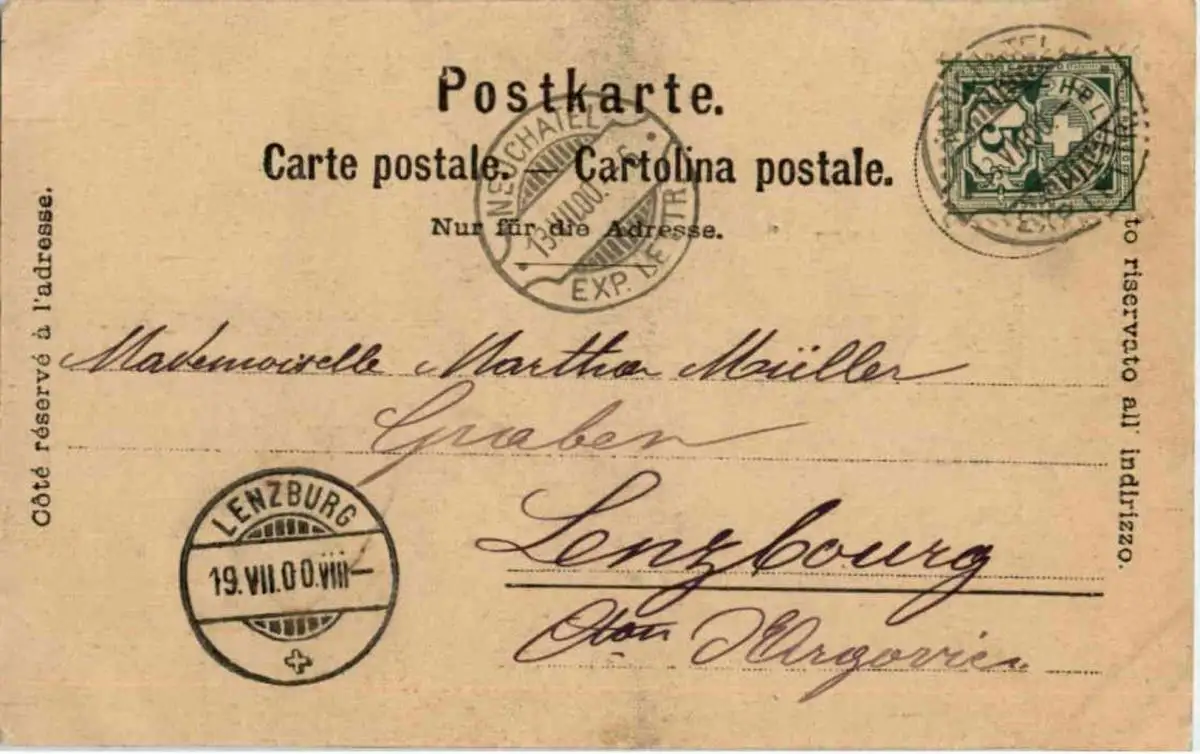 Postkarte.
Carte postale. — Cartolina postale.
Nur für die Adresse.
Côté réservé à l'adresse.
to riservato all' indirizzo.
NEUCHATEL
13.VII.00.
EXP. LETTR.
5
HELVETIA
Mademoiselle Martha Müller
Graben
Lenzbourg
Cton d'Argovie.
LENZBURG
19.VII.00.VIII—